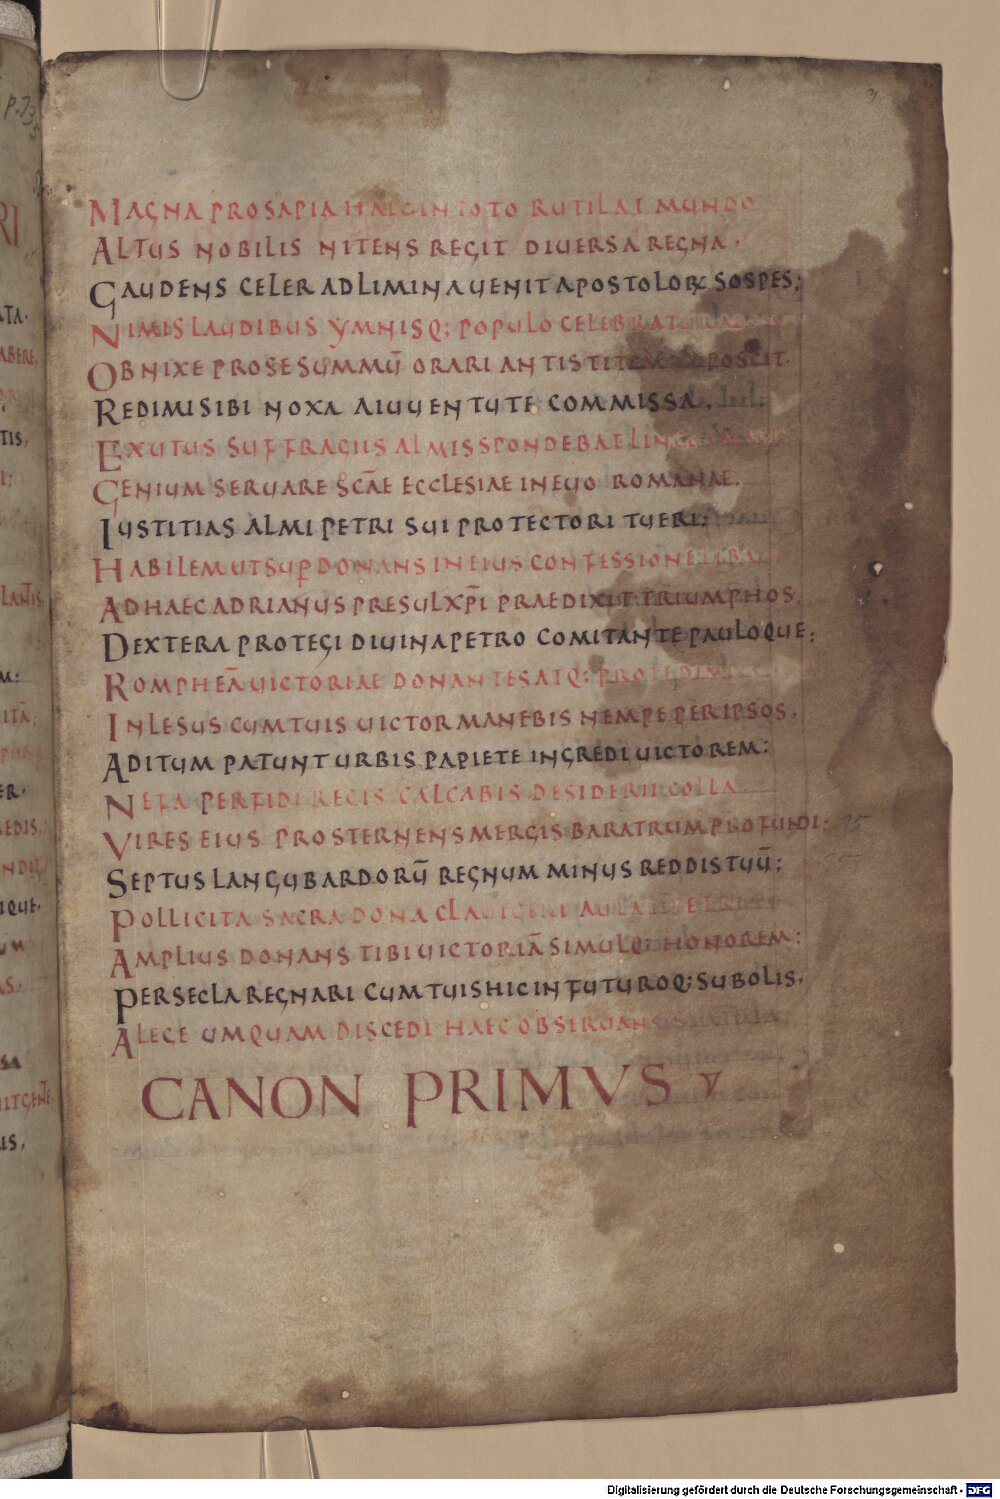 MAGNA PROSAPIA HAEC IN TOTO RUTILAT MUNDO
ALTUS NOBILIS NITENS REGIT DIUERSA REGNA.
GAUDENS CELER AD LIMINA UENIT APOSTOLORꝜ SOSPES;
NIMIS LAUDIBUS YMNISQ; POPULO CELEBRATUR
OBNIXE PRO SE SUMMŪ ORARI ANTISTITEM POPOSCIT.
REDIMI SIBI NOXA A IUUENTUTE COMMISSA.
EXUTUS SUFFRAGIIS ALMIS SPONDEBAT LINGUA
GENIUM SERUARE SCĀE ECCLESIAE IN EUO ROMANAE.
IUSTITIAS ALMI PETRI SUI PROTECTORI TUERI;
HABILEM UT SUꝑ DONANS IN EIUS CONFESSIONE
AD HAEC ADRIANUS PRESUL XP̄I PRAEDIXIT TRIUMPHOS.
DEXTERA PROTEGI DIUINA PETRO COMITANTE PAULOQUE;
ROMPHEĀ UICTORIAE DONANTES ATQ;
INLESUS CUM TUIS UICTOR MANEBIS NEMPE PER IPSOS.
ADITUM PATUNT URBIS PAPIETE INGREDI UICTOREM;
NEFA PERFIDI REGIS CALCABIS DESIDERII COLLA.
VIRES EIUS PROSTERNENS MERGIS BARATRUM PROFUNDI;
SEPTUS LANGUBARDORŪ REGNUM MINUS REDDIS TUŪ;
POLLICITA SACRA DONA CLAUIGERI AULAE PETRI
AMPLIUS DONANS TIBI UICTORIĀ SIMULQ; HONOREM;
PER SECLA REGNARI CUM TUIS HIC IN FUTUROQ; SUBOLIS.
A LEGE UMQUAM DISCEDI HAEC OBSERUANS
CANON PRIMVS
Digitalisierung gefördert durch die Deutsche Forschungsgemeinschaft - DFG